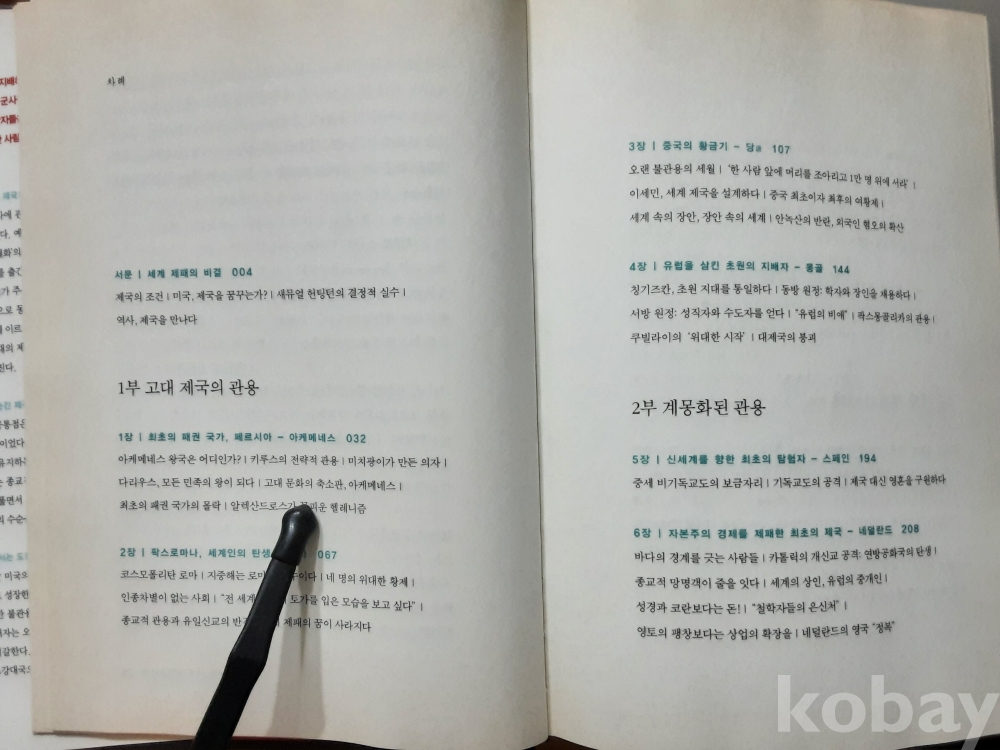 차례
서문 | 세계 제패의 비결 004
제국의 조건 | 미국, 제국을 꿈꾸는가? | 새뮤얼 헌팅턴의 결정적 실수 |
역사, 제국을 만나다
1부 고대 제국의 관용
1장 | 최초의 패권 국가, 페르시아 – 아케메네스 032
아케메네스 왕국은 어디인가? | 키루스의 전략적 관용 | 미치광이가 만든 의자 |
다리우스, 모든 민족의 왕이 되다 | 고대 문화의 축소판, 아케메네스 |
최초의 패권 국가의 몰락 | 알렉산드로스가 꽃피운 헬레니즘
2장 | 팍스로마나, 세계인의 탄생 067
코스모폴리탄 로마 | 지중해는 로마 이다 | 네 명의 위대한 황제 |
인종차별이 없는 사회 | "전 세계 토가를 입은 모습을 보고 싶다" |
종교적 관용과 유일신교의 제패의 꿈이 사라지다
3장 | 중국의 황금기 – 당唐 107
오랜 불관용의 세월 | '한 사람 앞에 머리를 조아리고 1만 명 위에 서라' |
이세민, 세계 제국을 설계하다 | 중국 최초이자 최후의 여황제 |
세계 속의 장안, 장안 속의 세계 | 안녹산의 반란, 외국인 혐오의 확산
4장 | 유럽을 삼킨 초원의 지배자 – 몽골 144
칭기즈칸, 초원 지대를 통일하다 | 동방 원정: 학자와 장인을 채용하다 |
서방 원정: 성직자와 수도자를 얻다 | "유럽의 비애" | 팍스몽골리카의 관용 |
쿠빌라이의 '위대한 시작' | 대제국의 붕괴
2부 계몽화된 관용
5장 | 신세계를 향한 최초의 탐험자 – 스페인 194
중세 비기독교도의 보금자리 | 기독교도의 공격 | 제국 대신 영혼을 구원하다
6장 | 자본주의 경제를 제패한 최초의 제국 – 네덜란드 208
바다의 경계를 긋는 사람들 | 카톨릭의 개신교 공격: 연방공화국의 탄생 |
종교적 망명객이 줄을 잇다 | 세계의 상인, 유럽의 중개인 |
성경과 코란보다는 돈! | "철학자들의 은신처" |
영토의 팽창보다는 상업의 확장을 | 네덜란드의 영국 "정복"
kobay